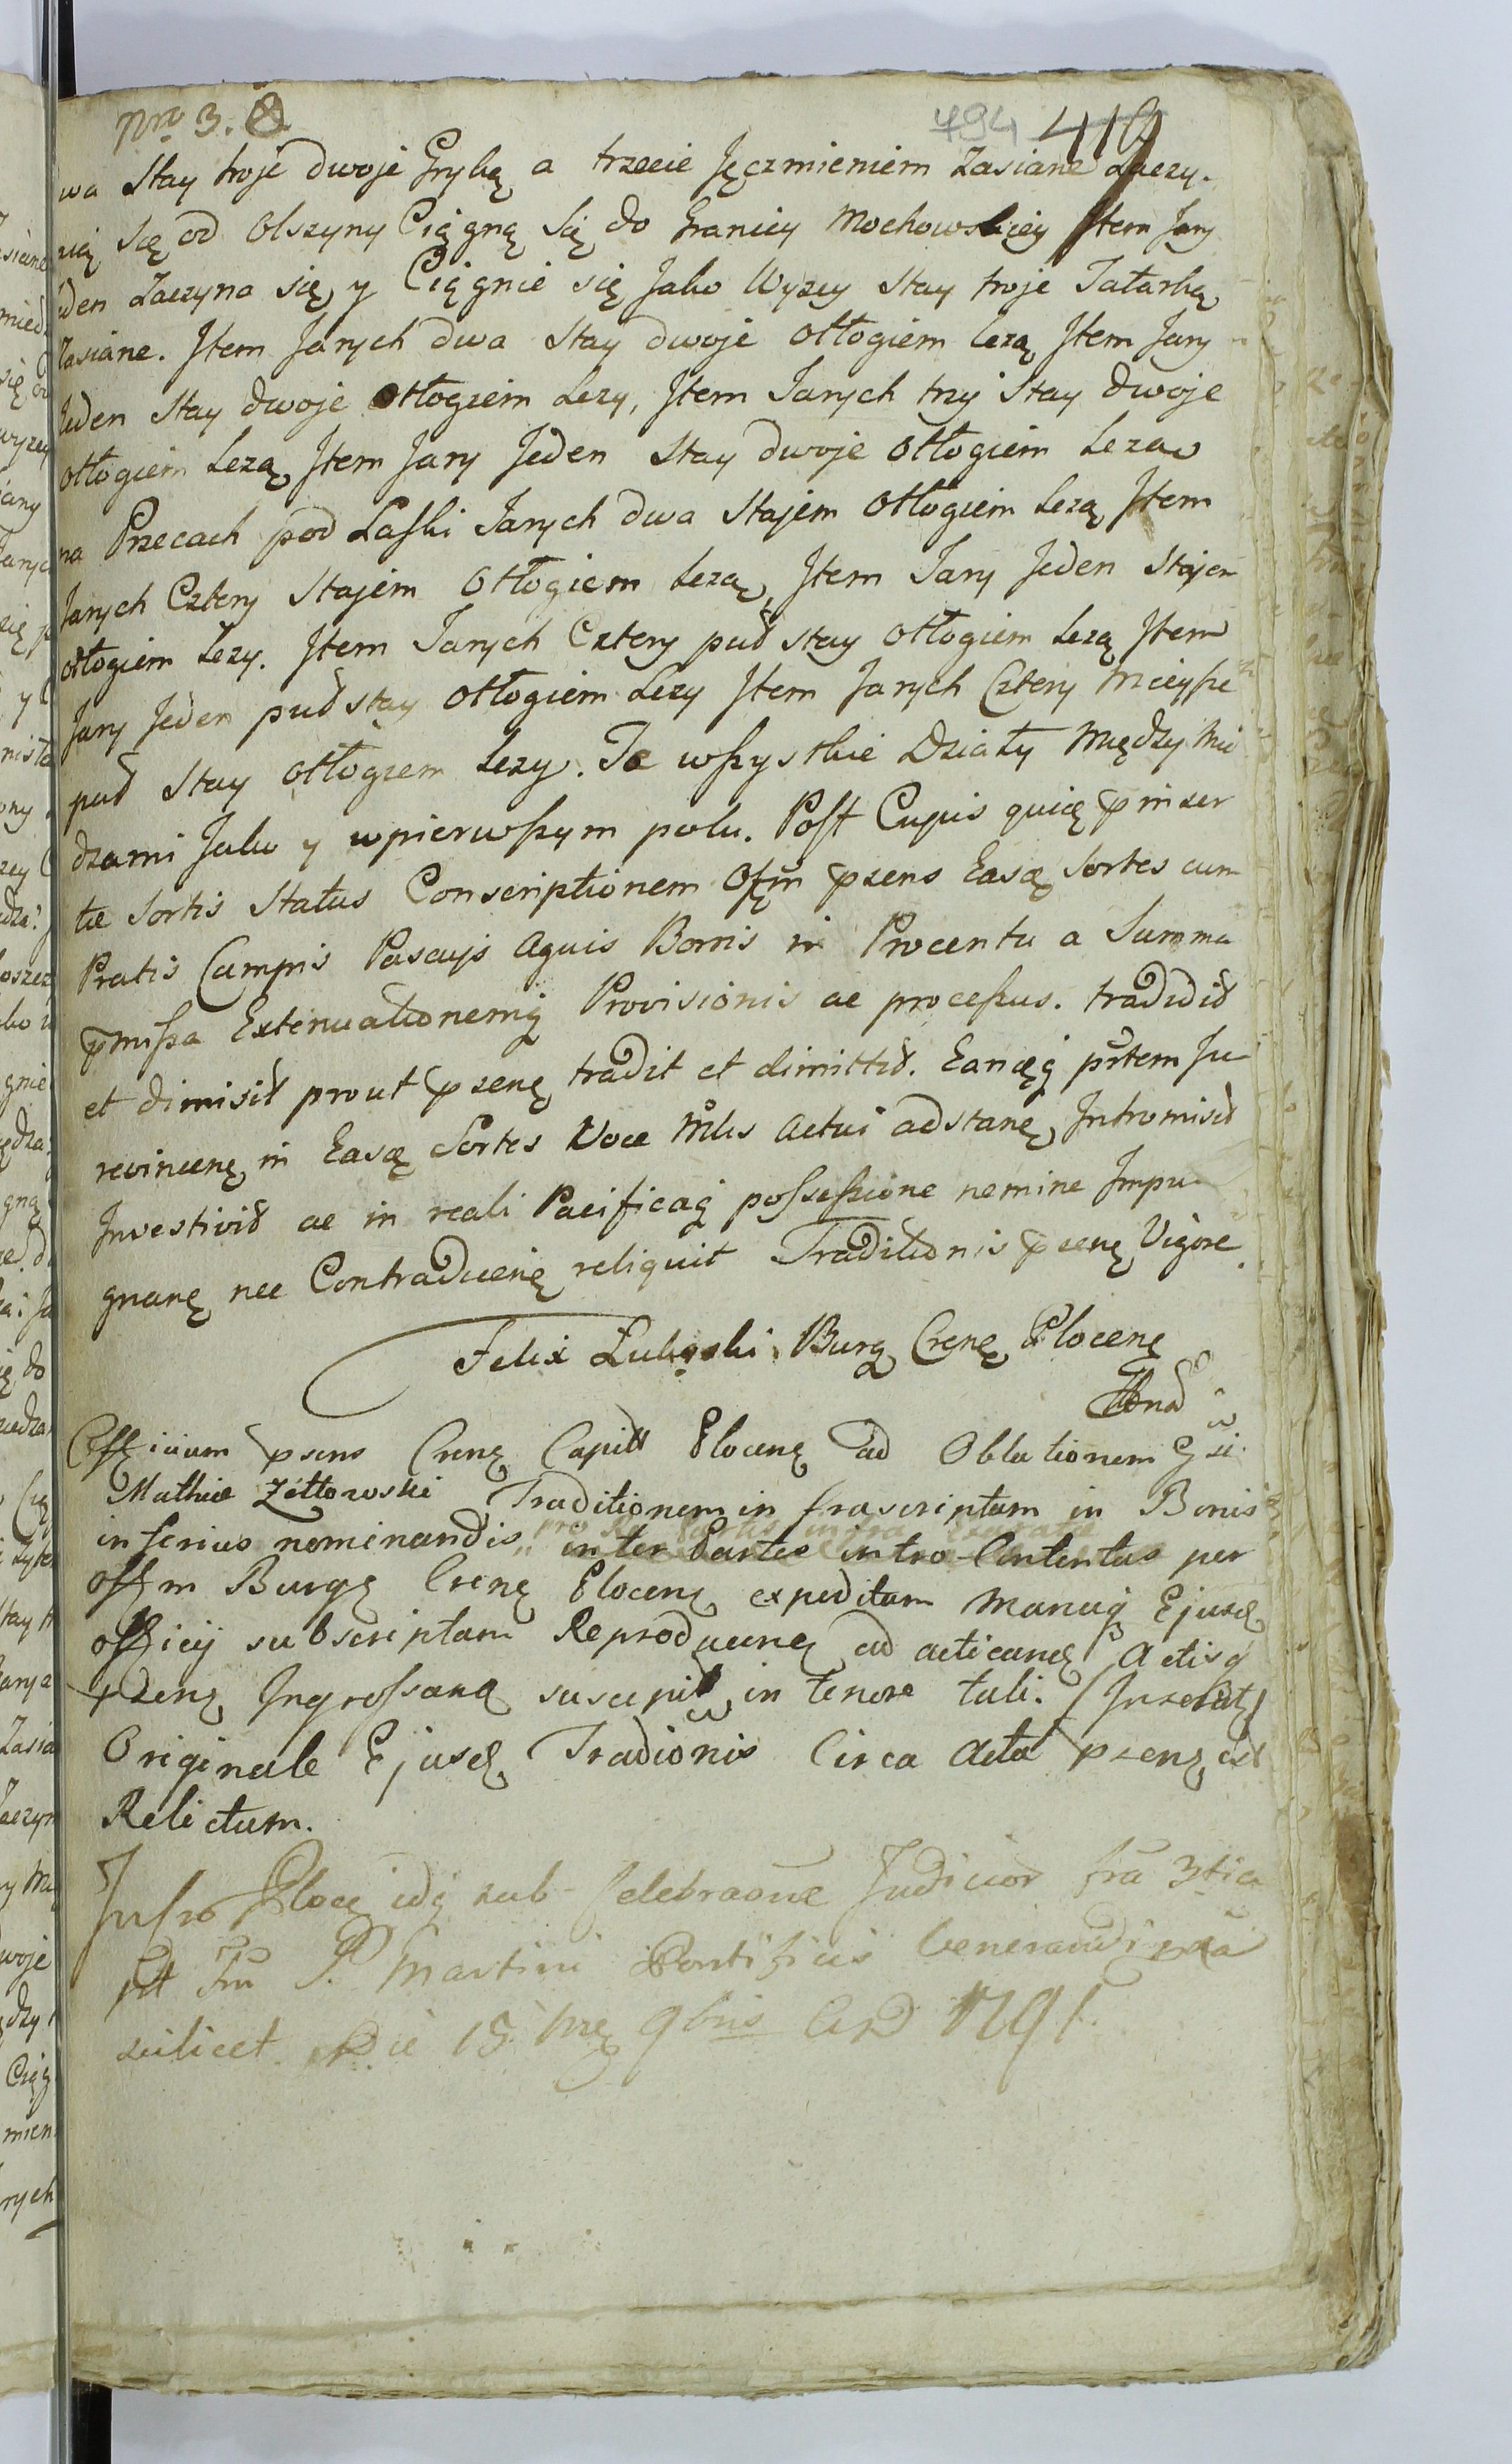 Nro 3.
794 419
wa Stay troje dwoje Gryką a trzecie Jęczmieniem zasiane Zaczy-
nią się od Olszyny Ciągną się do Granicy Mochowskiey Jtem Jany
Jeden Zaczyna się y Ciągnie się Jako Wyzey Stay troje Tatarką
Zasiane. Jtem Janych dwa Stay dwoje otłogiem lezą Jtem Jany
Jeden Stay dwoje otłogiem Lezy, Jtem Janych trzy Stay dwoje
otłogiem Lezą Jtem Jany Jeden Stay dwoje otłogiem Leza
na Przecach pod Laski Janych dwa Stajem Otłogiem Lezą Jtem
Janych Cztery Stajem Otłogiem Lezą, Jtem Jany Jeden Stajem
otłogiem Lezy. Jtem Janych Cztery puł stay otłogiem Lezą Jtem
Jany Jeden puł stay otłogiem Lezy Jtem Janych Cztery
puł Stay otłogiem Lezy. Te wszystkie Działy Między Mie
dzami Jako y wpierwszym polu. Post Cujus quidę pinser
tae Sortis Status Conscriptionem Offm pzens Easdę Sortes cum
Pratis Campis Pascujs Aquis Borris in Procentu a Summa
pmissa Extenuationemq Provisionis ac processus. tradidit
et dimisit prout pzenę tradit et dimittit. Eandęq prtem Ju-
revincenę in Easdę Sortes Voce Mtlis Actui adstanę, Intromisit
Jnvestivit ac in reali Pacificaq possessione nemine Jmpu-
gnanę nec Contradicenę reliquit Traditionis pzenę Vigore.
Felix Lubęski Burg Crenę Plocenę
Officium psens Crenę Capitt Plocenę ad Oblationem
Mathiae Zółtowski Traditionem in frascriptam in Bonis
inferius nominandis inter Partes intro-Contentas per
offm Burgę Crenę Plocenę expeditam Manuq Ejusdę
officij subscriptam Reproducenę ad acticandę Actisq
pzenę Jngrossandę suscepit in tenore tali. /Jnseratę/
Originale Ejusdę Tradionis Circa Acta pzenę est
Relictum.
sub Celebraone Judicior
Martini Pontificis
scilicet Die 15. Mrę 9bris AD 1791.